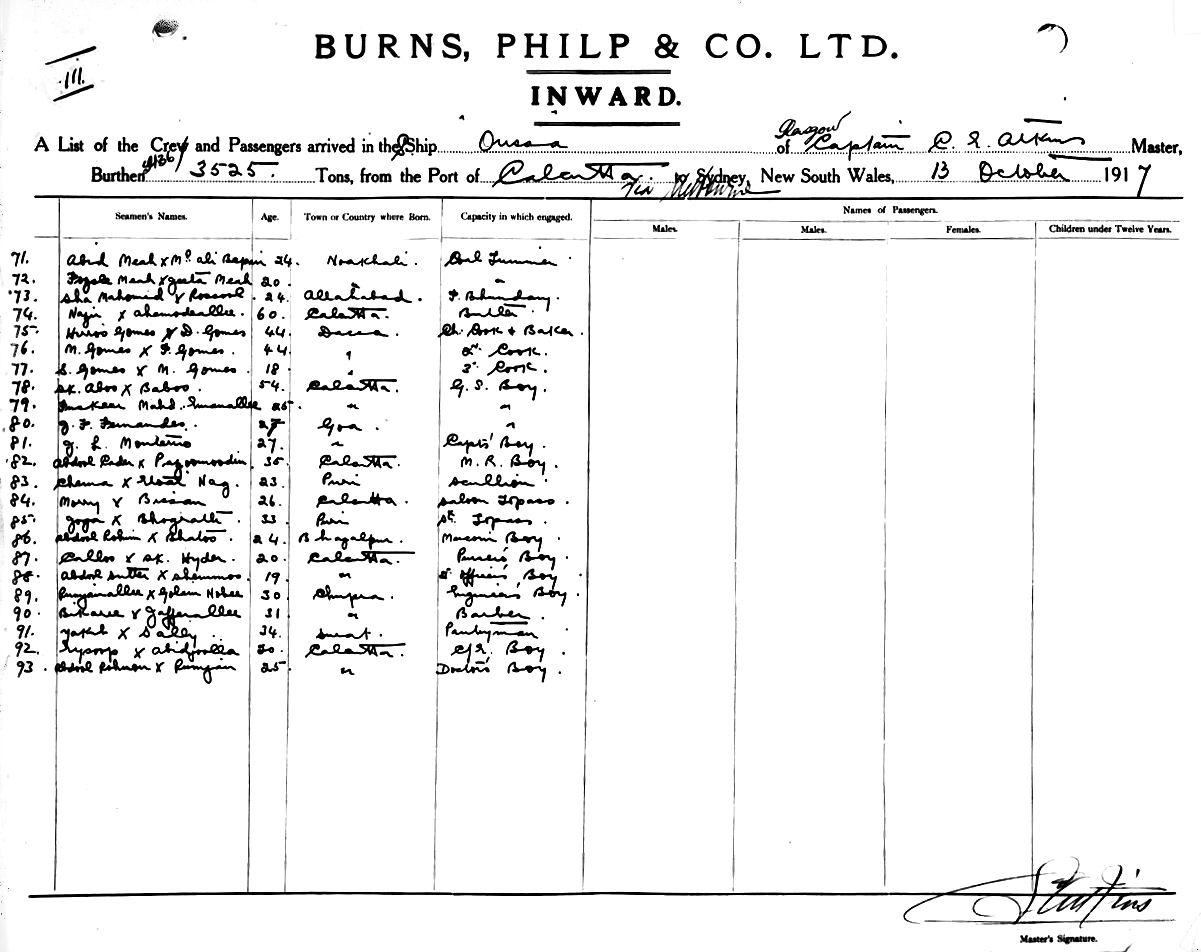 III.
BURNS, PHILP & CO. LTD.
INWARD.
A List of the Crew and Passengers arrived in the S Ship Orissa of Glasgow Captain C. S. Atkins Master,
Burthen 3525 Tons, from the Port of Calcutta to Sydney, New South Wales, 13 October 1917
via Melbourne
Seamen's Names. Age. Town or Country where Born. Capacity in which engaged. Names of Passengers.
Males. Males. Females. Children under Twelve Years.
71. Abid Meah x Md. ali 24. Noakhali. Coal Trimmer
72. Meah x Meah 20 "
73. Sha Mahomed x Rossool 24. Allahabad. F. Bhundary
74. Nazir x ahamodeallee. 60. Calcutta. Butler
75. Gomes x D. Gomes 44. Dacca. Ch. Cook & Baker.
76. M. Gomes x F. Gomes. 44. " 2nd Cook.
77. S. Gomes x M. Gomes. 18 " 3rd Cook.
78. Sk. Aboo x Baboo. 54. Calcutta. G. S. Boy.
79. Mahd. Emamallee 25. " "
80. J. F. Fernandes. 27 Goa. "
81. J. L. Monteiro 27. " Capts' Boy.
82. Abdool Cader x 35 Calcutta. M. R. Boy.
83. Chema x Nag. 23. Puri Scullion.
84. Morry x Bissan 26. Calcutta. Saloon Topass
85. Joga x 33. Puri St. Topass.
86. Abdool Rohim x 24. Bhagalpur. Marconi Boy.
87. Calloo x Sk. Hyder. 20. Calcutta. Purser's Boy.
88. Abdool Sutter x 19 " Officers' Boy
89. x Golam Nobee 30 Chupra. Engineers' Boy.
90. Bukaree x Jafferallee 31 " Barber.
91. Yakub x Sally 34. Surat. Pantryman
92. x Abidoolla 20. Calcutta. Boy.
93. Abdool Rohman x Rumjan 25. " Doctor's Boy.
Atkins
Master's Signature.